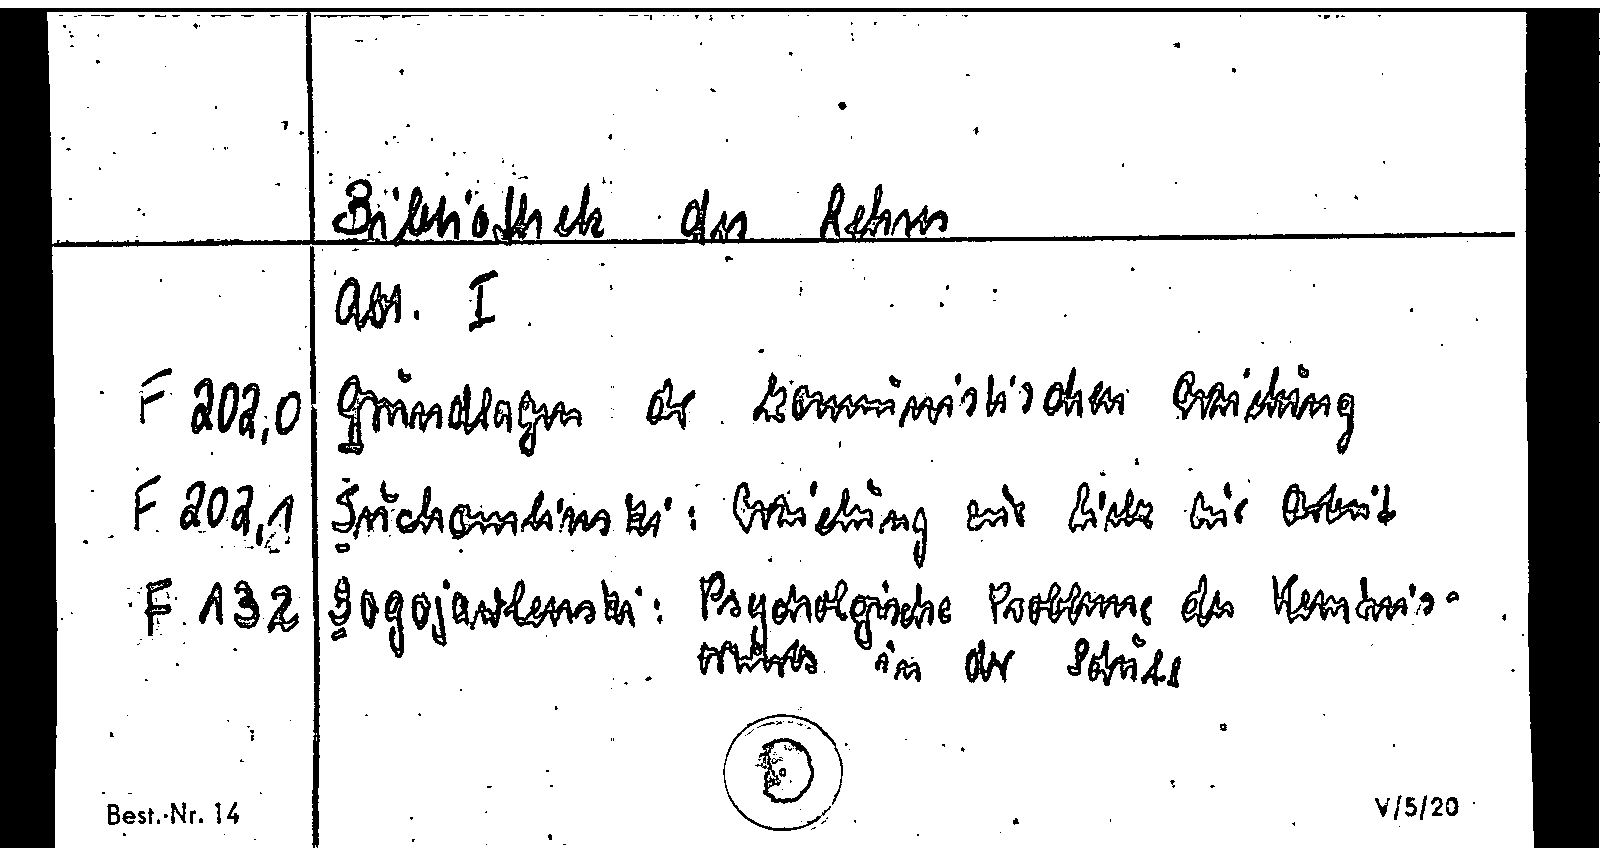 Bibliothek des Lehrers
Abt. I
F 202,0 Grundlagen der kommunistischen Erziehung
F 202,1 Suchomlinski: Erziehung zur Liebe zur Arbeit
F 132 Bogojawlenski: Psychologische Probleme des Kenntnis-
erwerbs in der Schule
Best.-Nr. 14
V/5/20